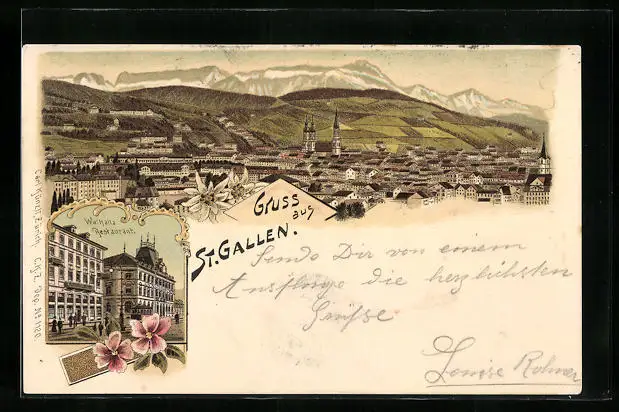 Walhalla
Restaurant.
Gruss
aus
ST. GALLEN.
Sende Dir von einem
Ausfluge die herzlichsten
Grüsse
Louise Rohner
Carl Künzli, Zürich. C.K.Z. Dep. No. 1120